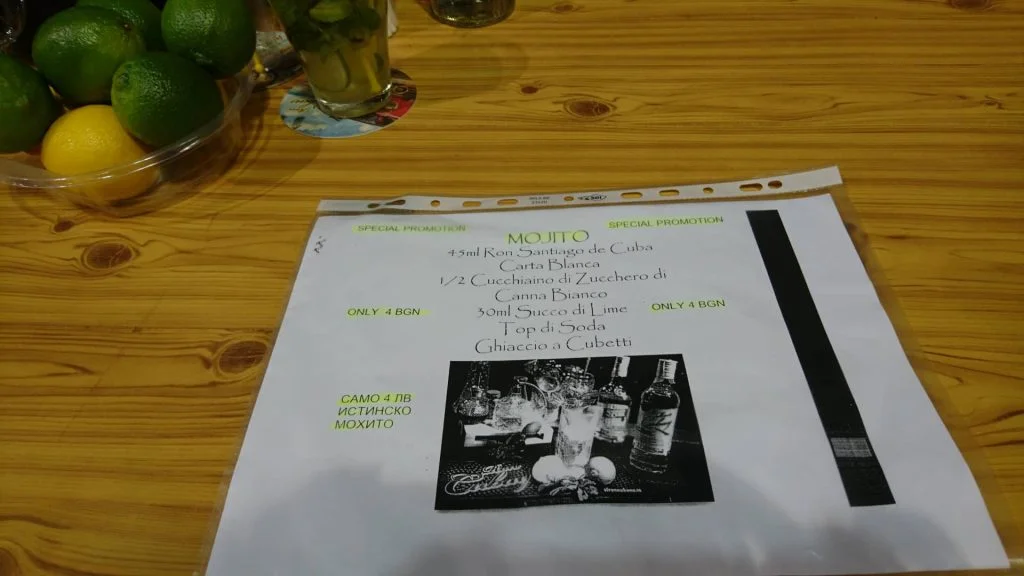 SPECIAL PROMOTION
SPECIAL PROMOTION
MOJITO
45ml Ron Santiago de Cuba
Carta Blanca
1/2 Cucchiaino di Zucchero di
Canna Bianco
ONLY 4 BGN
30ml Succo di Lime
ONLY 4 BGN
Top di Soda
Ghiaccio a Cubetti
САМО 4 ЛВ
ИСТИНСКО
МОХИТО